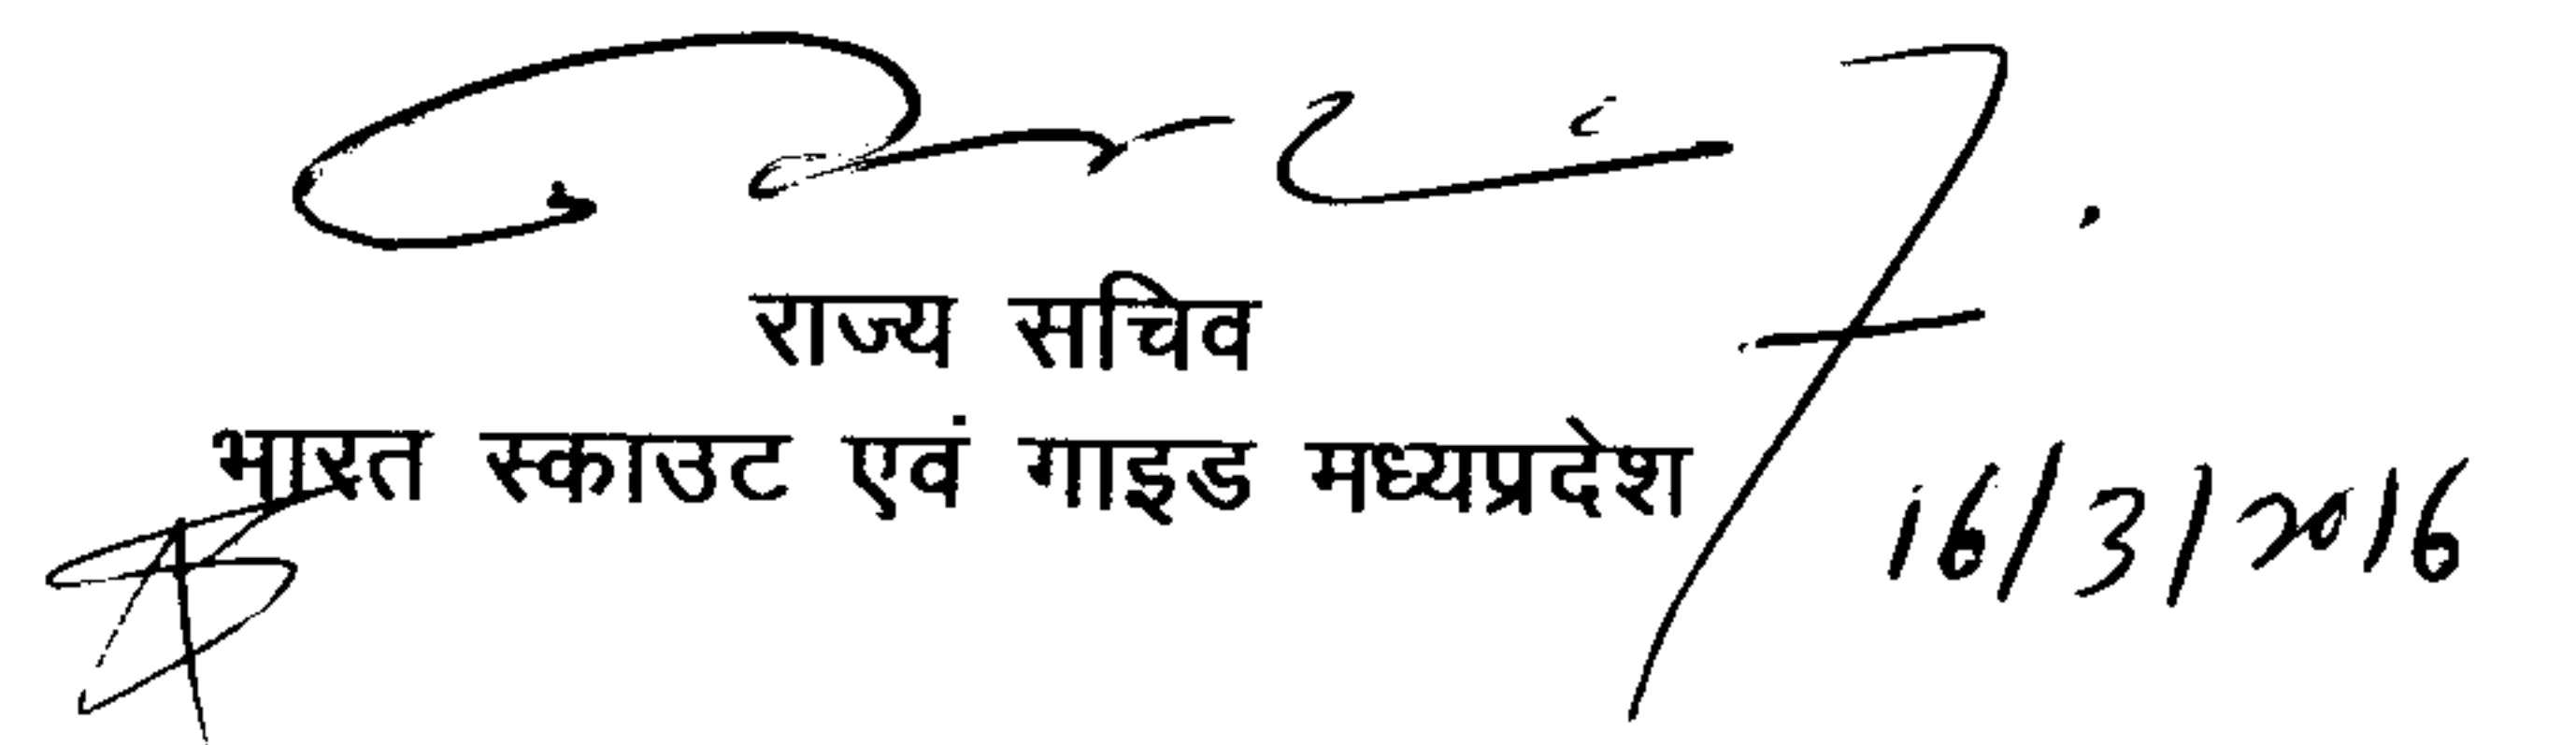 राज्य सचिव
भारत स्काउट एवं गाइड मध्यप्रदेश
16/3/2016